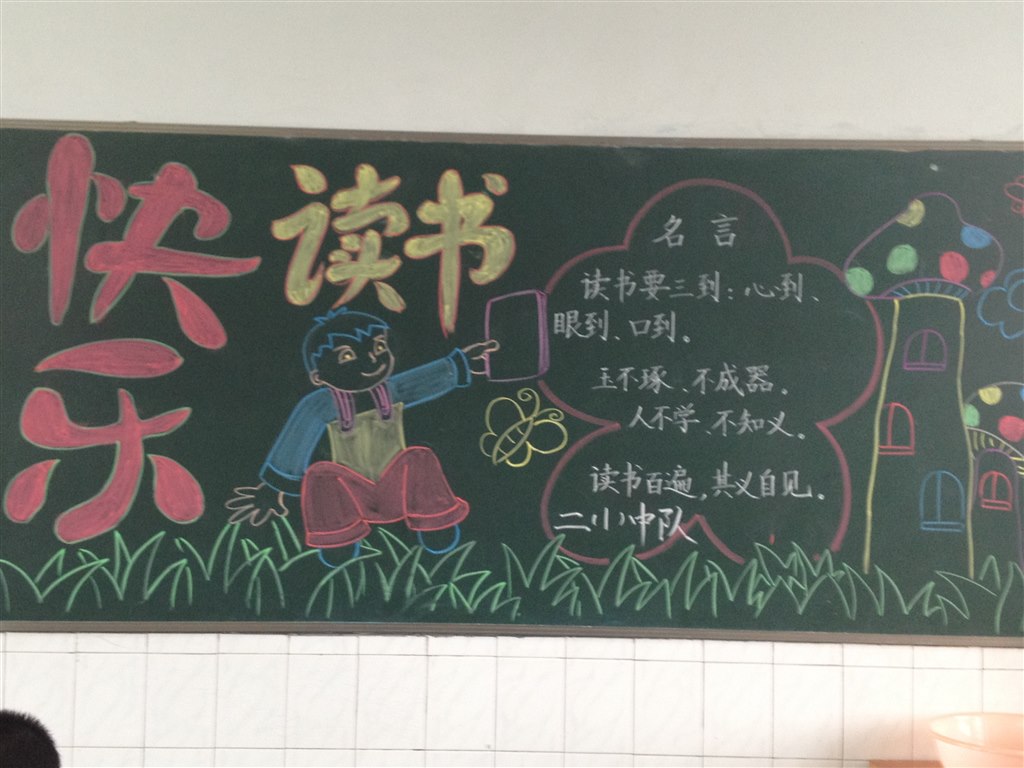 快乐
读书
名言
读书要三到：心到、
眼到、口到。
玉不琢、不成器。
人不学、不知义。
读书百遍，其义自见。
二小八中队